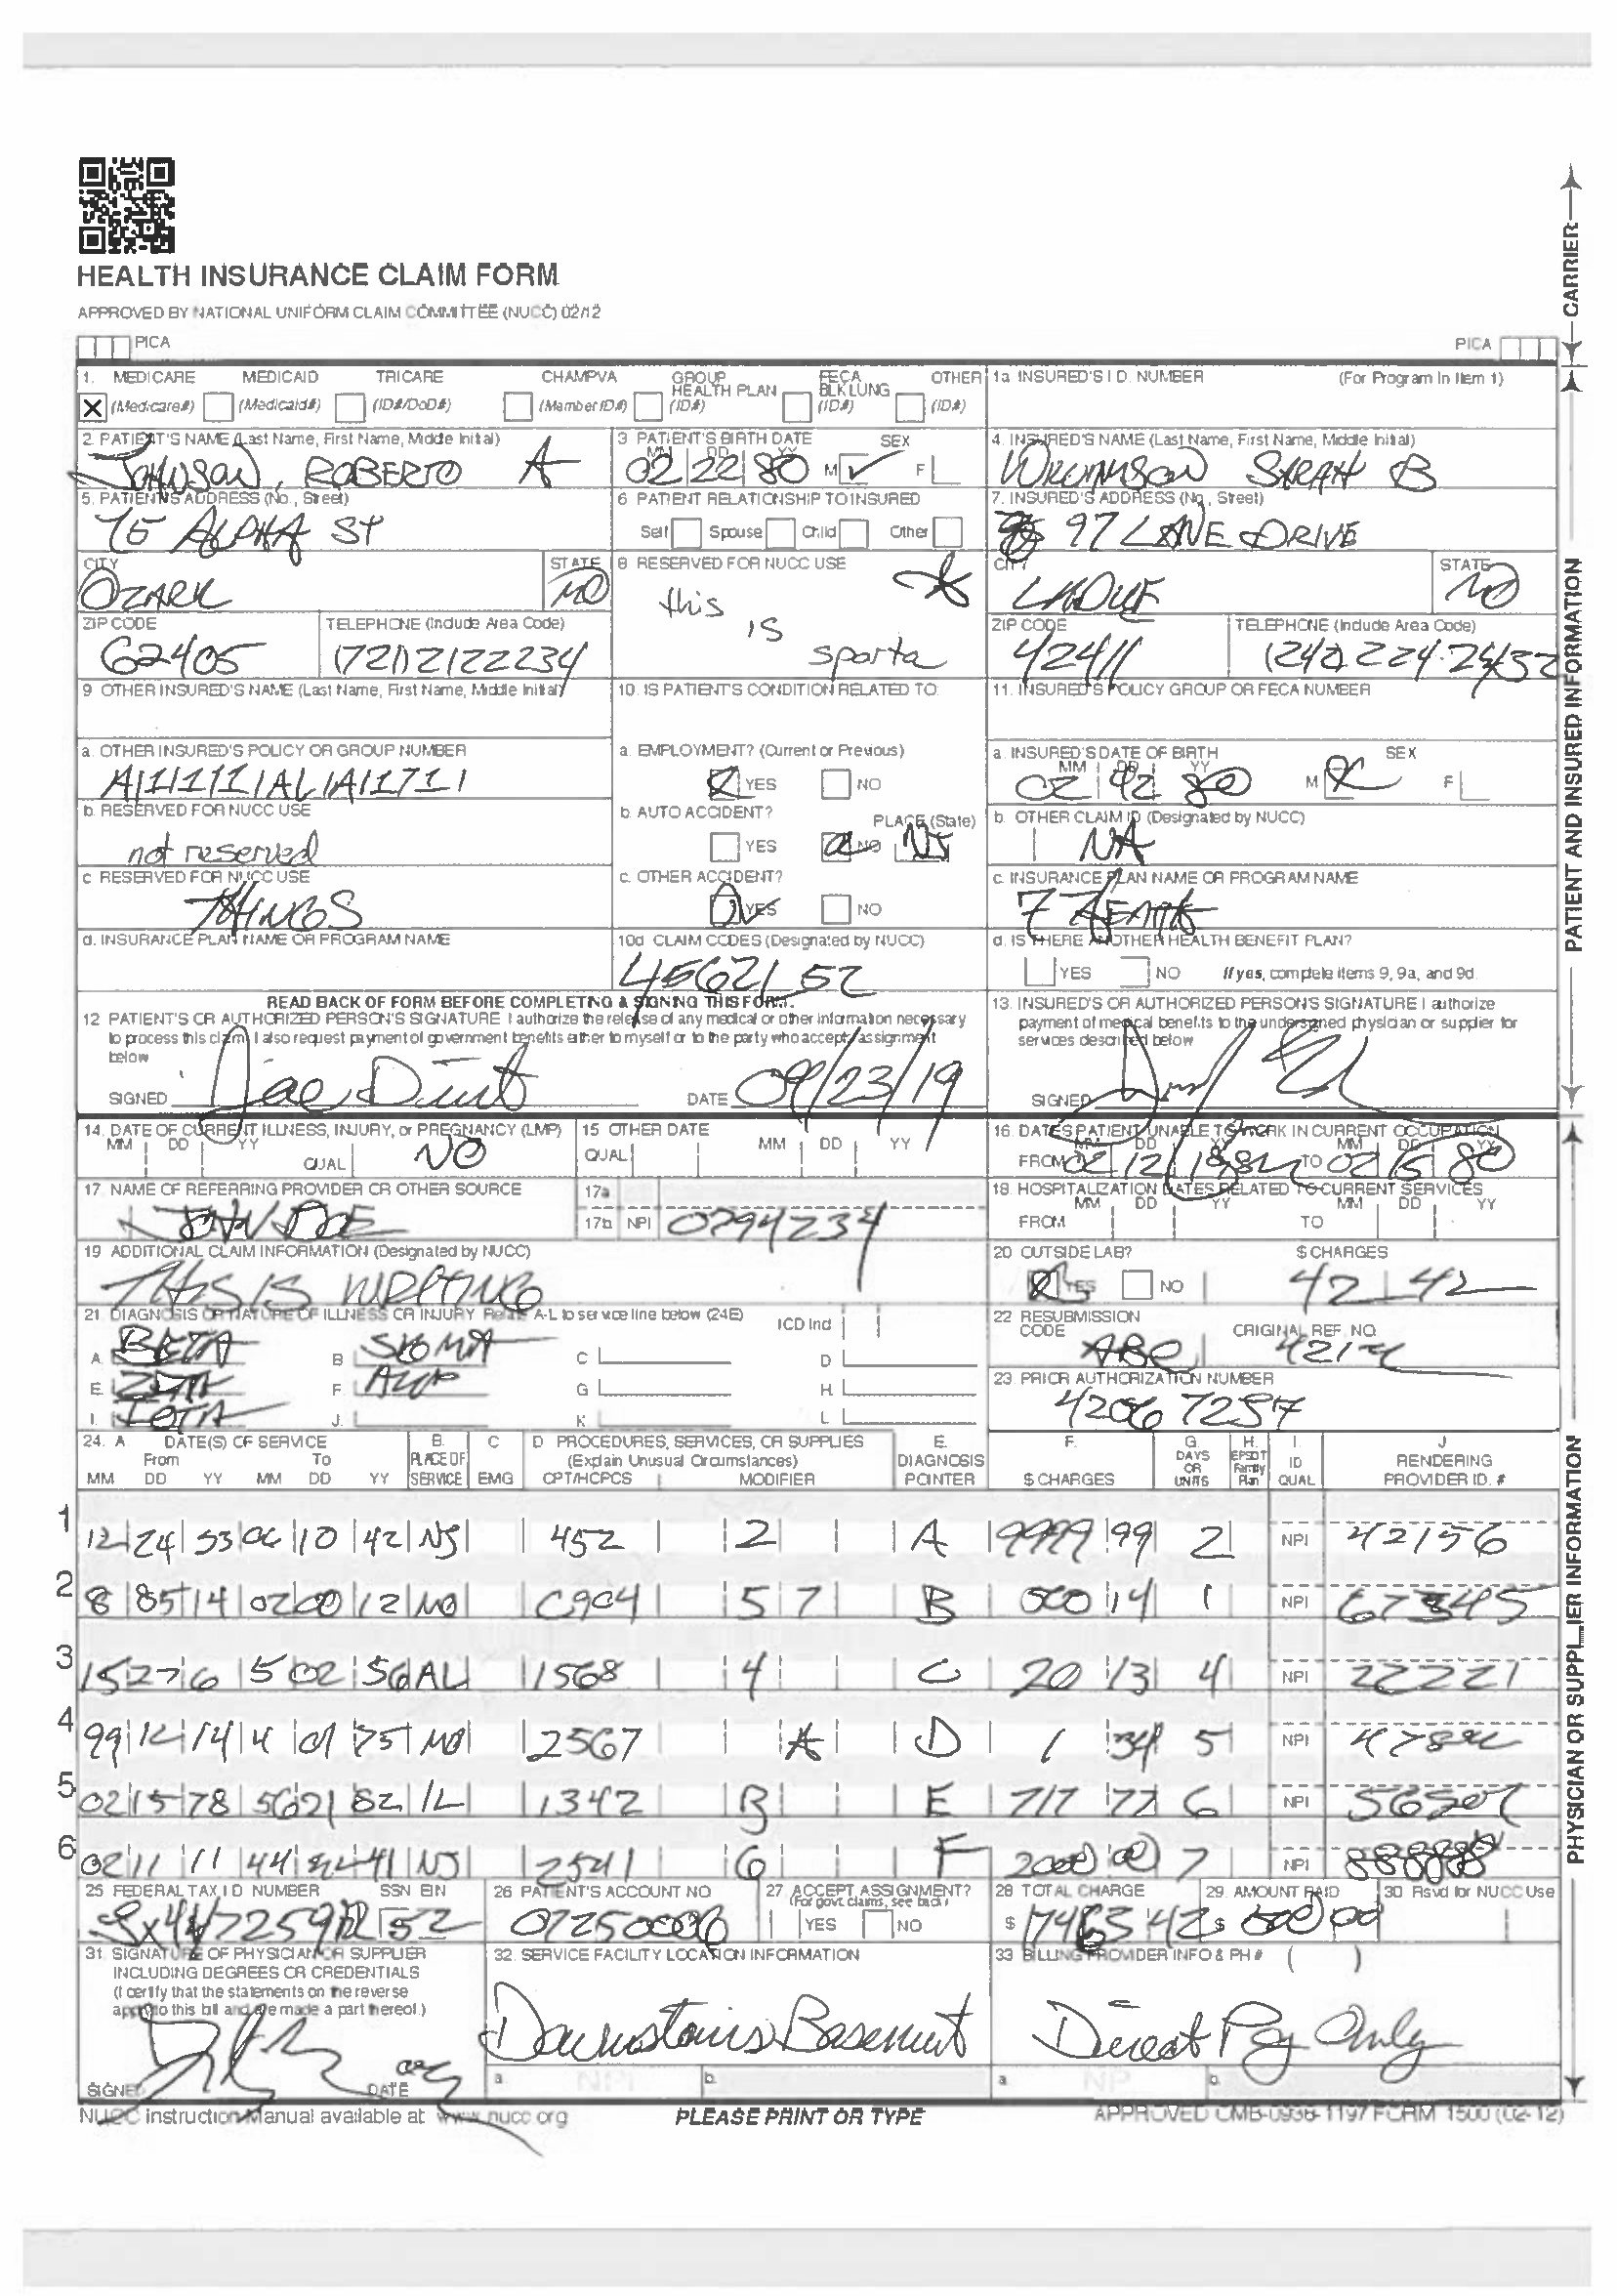 HEALTH INSURANCE CLAIM FORM
APPROVED BY NATIONAL UNIFORM CLAIM COMMITTEE (NUCC) 02/12
PICA PICA
CARRIER
1. MEDICARE MEDICAID TRICARE CHAMPVA GROUP HEALTH PLAN FECA BLK LUNG OTHER
X (Medicare#) (Medicaid#) (ID#/DoD#) (Member ID#) (ID#) (ID#) (ID#)
1a INSURED'S I.D. NUMBER (For Program In Item 1)
2. PATIENT'S NAME (Last Name, First Name, Middle Initial)
JOHNSON, ROBERTO A
3 PATIENT'S BIRTH DATE SEX
MM DD YY
02 22 80 M F
4. INSURED'S NAME (Last Name, First Name, Middle Initial)
SARAH B
5. PATIENT'S ADDRESS (No., Street)
75 ALPHA ST
6 PATIENT RELATIONSHIP TO INSURED
Self Spouse Child Other
7. INSURED'S ADDRESS (No., Street)
97 LANE DRIVE
CITY STATE
OZARK MO
8 RESERVED FOR NUCC USE
this is sparta
CITY STATE
LADUE MO
ZIP CODE TELEPHONE (Include Area Code)
62405 (721)2122234
ZIP CODE TELEPHONE (Include Area Code)
42411
9 OTHER INSURED'S NAME (Last Name, First Name, Middle Initial)
10. IS PATIENT'S CONDITION RELATED TO:
11. INSURED'S POLICY GROUP OR FECA NUMBER
a. OTHER INSURED'S POLICY OR GROUP NUMBER
a. EMPLOYMENT? (Current or Previous)
YES NO
a. INSURED'S DATE OF BIRTH SEX
MM DD YY
02 42 80 M F
b. RESERVED FOR NUCC USE
not reserved
b. AUTO ACCIDENT? PLACE (State)
YES NO NJ
b. OTHER CLAIM ID (Designated by NUCC)
NA
c. RESERVED FOR NUCC USE
THINGS
c. OTHER ACCIDENT?
YES NO
c. INSURANCE PLAN NAME OR PROGRAM NAME
d. INSURANCE PLAN NAME OR PROGRAM NAME
10d CLAIM CODES (Designated by NUCC)
4562152
d. IS THERE ANOTHER HEALTH BENEFIT PLAN?
YES NO If yes, complete items 9, 9a, and 9d.
READ BACK OF FORM BEFORE COMPLETING & SIGNING THIS FORM.
12 PATIENT'S OR AUTHORIZED PERSON'S SIGNATURE I authorize the release of any medical or other information necessary
to process this claim. I also request payment of government benefits either to myself or to the party who accepts assignment
below
SIGNED DATE 09/23/19
13. INSURED'S OR AUTHORIZED PERSON'S SIGNATURE I authorize
payment of medical benefits to the undersigned physician or supplier for
services described below
SIGNED
PATIENT AND INSURED INFORMATION
14. DATE OF CURRENT ILLNESS, INJURY, or PREGNANCY (LMP)
MM DD YY QUAL NO
15 OTHER DATE
QUAL MM DD YY
16. DATES PATIENT UNABLE TO WORK IN CURRENT OCCUPATION
MM DD YY MM DD YY
FROM TO
17. NAME OF REFERRING PROVIDER OR OTHER SOURCE
JOHN DOE
17a
17b NPI 0794234
18. HOSPITALIZATION DATES RELATED TO CURRENT SERVICES
MM DD YY MM DD YY
FROM TO
19 ADDITIONAL CLAIM INFORMATION (Designated by NUCC)
THIS IS WRITING
20 OUTSIDE LAB? $ CHARGES
YES NO 42 42
21. DIAGNOSIS OR NATURE OF ILLNESS OR INJURY Relate A-L to service line below (24E) ICD Ind
A. BETA B SIGMA C D
E. F. G H.
I. IOTA J. K L
22 RESUBMISSION CODE ORIGINAL REF. NO.
ABC
23. PRIOR AUTHORIZATION NUMBER
24. A DATE(S) OF SERVICE B. C D PROCEDURES, SERVICES, OR SUPPLIES E. F. G. H. I. J
From To PLACE OF (Explain Unusual Circumstances) DIAGNOSIS DAYS OR UNITS EPSDT Family Plan ID RENDERING
MM DD YY MM DD YY SERVICE EMG CPT/HCPCS MODIFIER POINTER $ CHARGES QUAL PROVIDER ID. #
1 12 24 53 06 10 42 NJ 452 2 A 9999 99 2 NPI 42156
2 8 85 14 02 00 12 MO C904 5 7 B 000 14 1 NPI 67345
3 15 27 6 5 02 56 AL 1568 4 C 20 13 4 NPI 22221
4 99 12 14 4 01 75 MO 2567 A D 1 34 5 NPI
5 02 15 78 56 21 82 IL 1342 B E 717 77 6 NPI
6 02 11 11 44 41 NJ 2541 6 F 2000 00 7 NPI
25 FEDERAL TAX I.D. NUMBER SSN EIN
26 PATIENT'S ACCOUNT NO
27 ACCEPT ASSIGNMENT?
(For govt. claims, see back)
YES NO
28 TOTAL CHARGE
$
29. AMOUNT PAID
$
30 Rsvd for NUCC Use
31. SIGNATURE OF PHYSICIAN OR SUPPLIER
INCLUDING DEGREES OR CREDENTIALS
(I certify that the statements on the reverse
apply to this bill and are made a part thereof.)
SIGNED DATE
32. SERVICE FACILITY LOCATION INFORMATION
Downstairs Basement
a. NPI b.
33 BILLING PROVIDER INFO & PH # ( )
Direct Pay Only
a. NPI b.
PHYSICIAN OR SUPPLIER INFORMATION
NUCC Instruction Manual available at www.nucc.org
PLEASE PRINT OR TYPE
APPROVED OMB-0938-1197 FORM 1500 (02-12)